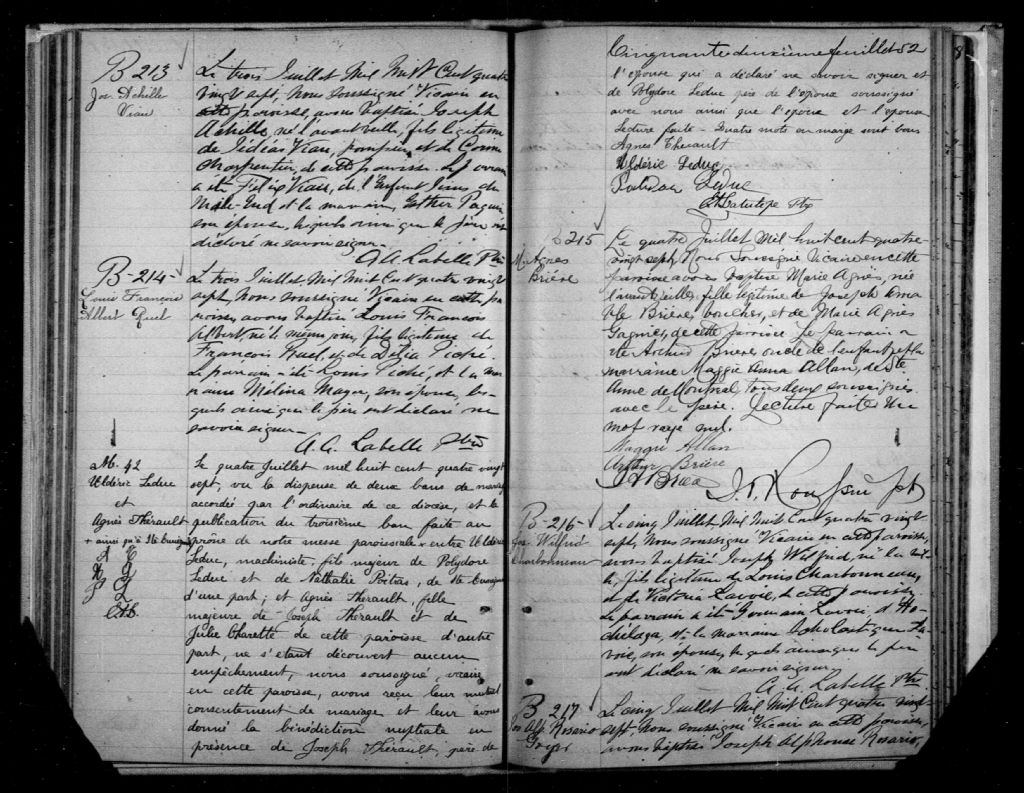 B 213
Jos. Achille
Viau
Le trois Juillet Mil Huit Cent quatre
vingt sept, Nous soussigné Vicaire en
cette paroisse, avons baptisé Joseph
Achille, né l'avant veille, fils légitime
de Viau, pompier, et de
Charpentier, de cette paroisse. Le parrain
a été Viau, de l'Enfant Jésus du
Mile-End et la marraine, Esther Paquin
son épouse, lesquels ainsi que le père ont
déclaré ne savoir signer.
A. A. Labelle Ptre
B-214-
Louis François
Albert Ruel
Le trois Juillet Mil Huit Cent quatre vingt
sept, Nous soussigné Vicaire en cette pa
roisse, avons baptisé Louis François
Albert, né le même jour, fils légitime de
François Ruel, et de Délia Piché.
Le parrain a été Louis Piché, et la mar
raine Mélina Mayer, son épouse, les-
quels ainsi que le père ont déclaré ne
savoir signer.
A. A. Labelle Ptre
M. 42
Uldéric Leduc
et
Agnès Thérault
+ ainsi qu'à Ste Cunégonde
Le quatre Juillet mil huit cent quatre vingt
sept, vu la dispense de deux bans de mariage
accordée par l'ordinaire de ce diocèse, et la
publication du troisième ban faite au
prône de notre messe paroissiale + entre Uldéric
Leduc, machiniste, fils majeur de Polydore
Leduc et de Nathalie Poitras, de Ste Cunégonde
d'une part; et Agnès Thérault, fille
majeure de Joseph Thérault et de
Julie Charette de cette paroisse d'autre
part, ne s'étant découvert aucun
empêchement, nous soussigné, vicaire
en cette paroisse, avons reçu leur mutuel
consentement de mariage et leur avons
donné la bénédiction nuptiale en
présence de Joseph Thérault, père de
Cinquante deuxième feuillet 52
l'épouse qui a déclaré ne savoir signer et
de Polydore Leduc père de l'époux soussigné
avec nous ainsi que l'époux et l'épouse
Lecture faite - Quatre mots en marge sont bons
Agnes Therault
Uldéric Leduc
Leduc
Ptre
B 215
M. Agnes
Brière
Le quatre Juillet Mil huit cent quatre-
vingt sept, Nous soussigné Vicaire en cette
paroisse avons baptisé Marie Agnès, née
l'avant veille, fille légitime de Joseph Ama
ble Brière, boucher, et de Marie Agnès
Gagnier, de cette paroisse. Le parrain a
été Arthur Brière oncle de l'enfant et la
marraine Maggie Anna Allan, de Ste
Anne de Montréal, tous deux soussignés
avec le père. Lecture faite Un
mot rayé nul.
Maggie Allan
Arthur Brière
J A Brière
B-216-
Jos. Wilfrid
Charbonneau
Le cinq Juillet Mil Huit Cent quatre vingt
sept, Nous soussigné Vicaire en cette paroisse,
avons baptisé Joseph Wilfrid, né la veil
le, fils légitime de Louis Charbonneau,
et de Victoria Lavoie, de cette paroisse.
Le parrain a été Germain Lavoie, d'Ho-
chelaga, et la marraine Scholastique
son épouse, lesquels ainsi que le père
ont déclaré ne savoir signer.
A. A. Labelle Ptre
B 217
Jos Alp. Rosario
Goyer
Le cinq Juillet Mil Huit Cent quatre vingt
sept, Nous soussigné Vicaire en cette paroisse,
avons baptisé Joseph Alphonse Rosario,